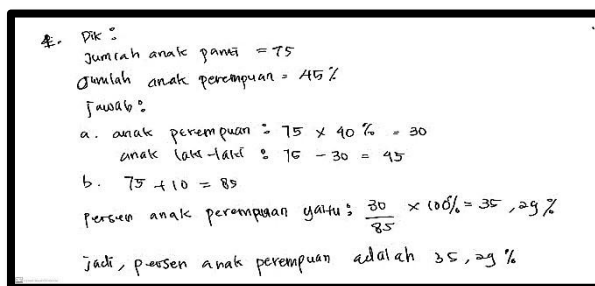 4. Dik :
Jumlah anak panti = 75
Jumlah anak perempuan = 45%
Jawab :
a. anak perempuan : 75 x 40% = 30
anak laki-laki : 75 - 30 = 45
b. 75 + 10 = 85
Persen anak perempuan yaitu : 30/85 x 100% = 35,29%
jadi, persen anak perempuan adalah 35,29%